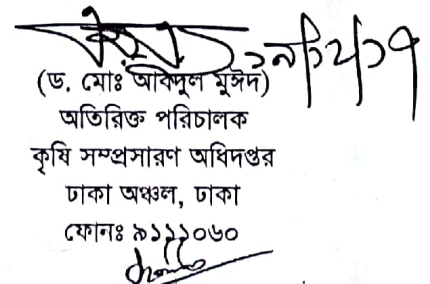 ১৯/১২/১৭
(ড. মোঃ আবদুল মুঈদ)
অতিরিক্ত পরিচালক
কৃষি সম্প্রসারণ অধিদপ্তর
ঢাকা অঞ্চল, ঢাকা
ফোনঃ ৯১১১০৬০